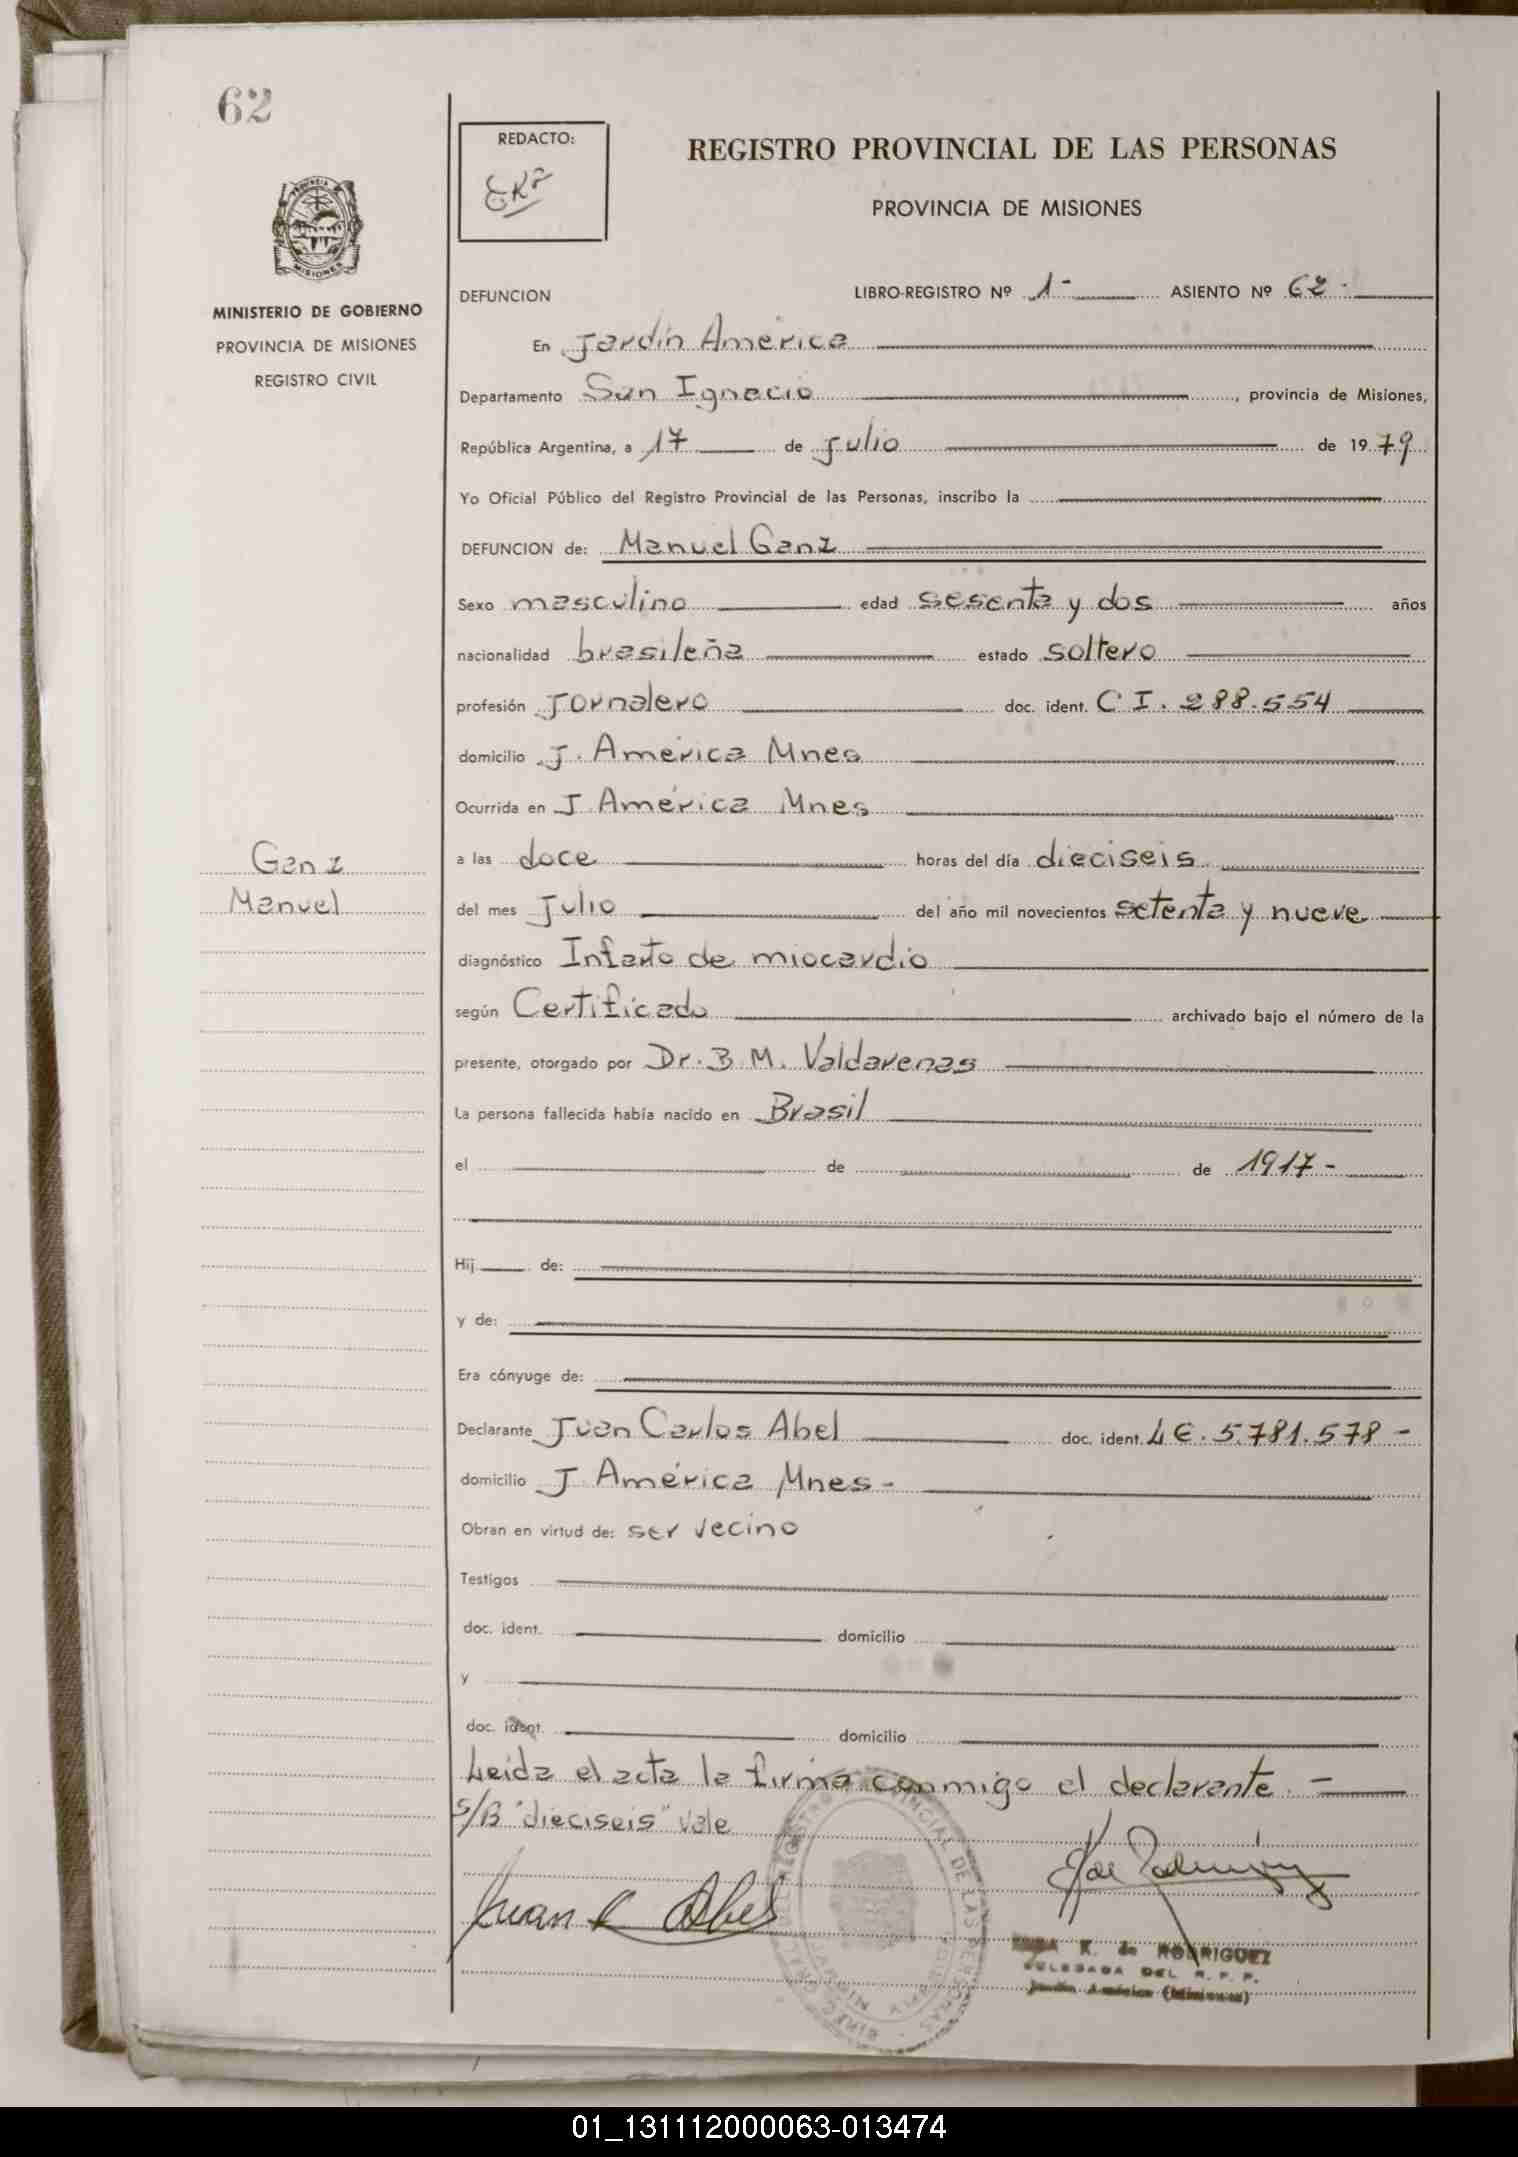 62
REDACTO:
REGISTRO PROVINCIAL DE LAS PERSONAS
PROVINCIA DE MISIONES
PROVINCIA
MISIONES
MINISTERIO DE GOBIERNO
PROVINCIA DE MISIONES
REGISTRO CIVIL
DEFUNCION LIBRO-REGISTRO Nº 1- ASIENTO Nº 62-
En Jardín América
Departamento San Ignacio, provincia de Misiones,
República Argentina, a 17 de julio de 1979
Yo Oficial Público del Registro Provincial de las Personas, inscribo la
DEFUNCION de: Manuel Ganz
Sexo masculino edad sesenta y dos años
nacionalidad brasileña estado soltero
profesión Jornalero doc. ident. C I. 288.554
domicilio J. América Mnes
Ocurrida en J. América Mnes
Ganz
Manuel
a las doce horas del día dieciseis
del mes Julio del año mil novecientos setenta y nueve
diagnóstico Infarto de miocardio
según Certificado archivado bajo el número de la
presente, otorgado por Dr. B. M. Valdarenas
La persona fallecida había nacido en Brasil
el de de 1917-
Hij de:
y de:
Era cónyuge de:
Declarante Juan Carlos Abel doc. ident. L E. 5.781.578-
domicilio J. América Mnes-
Obran en virtud de: ser vecino
Testigos
doc. ident. domicilio
y
doc. ident. domicilio
Leida el acta la firma conmigo el declarante.-
S/B "dieciseis" vale
Juan C Abel
K. de RODRIGUEZ
DELEGADA DEL R. P. P.
Jardín América (Misiones)
01_131112000063-013474